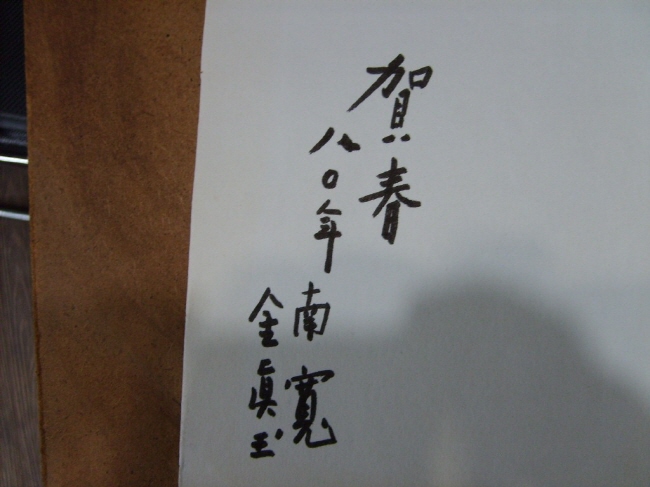 賀春
八〇年
南寬
金眞玉